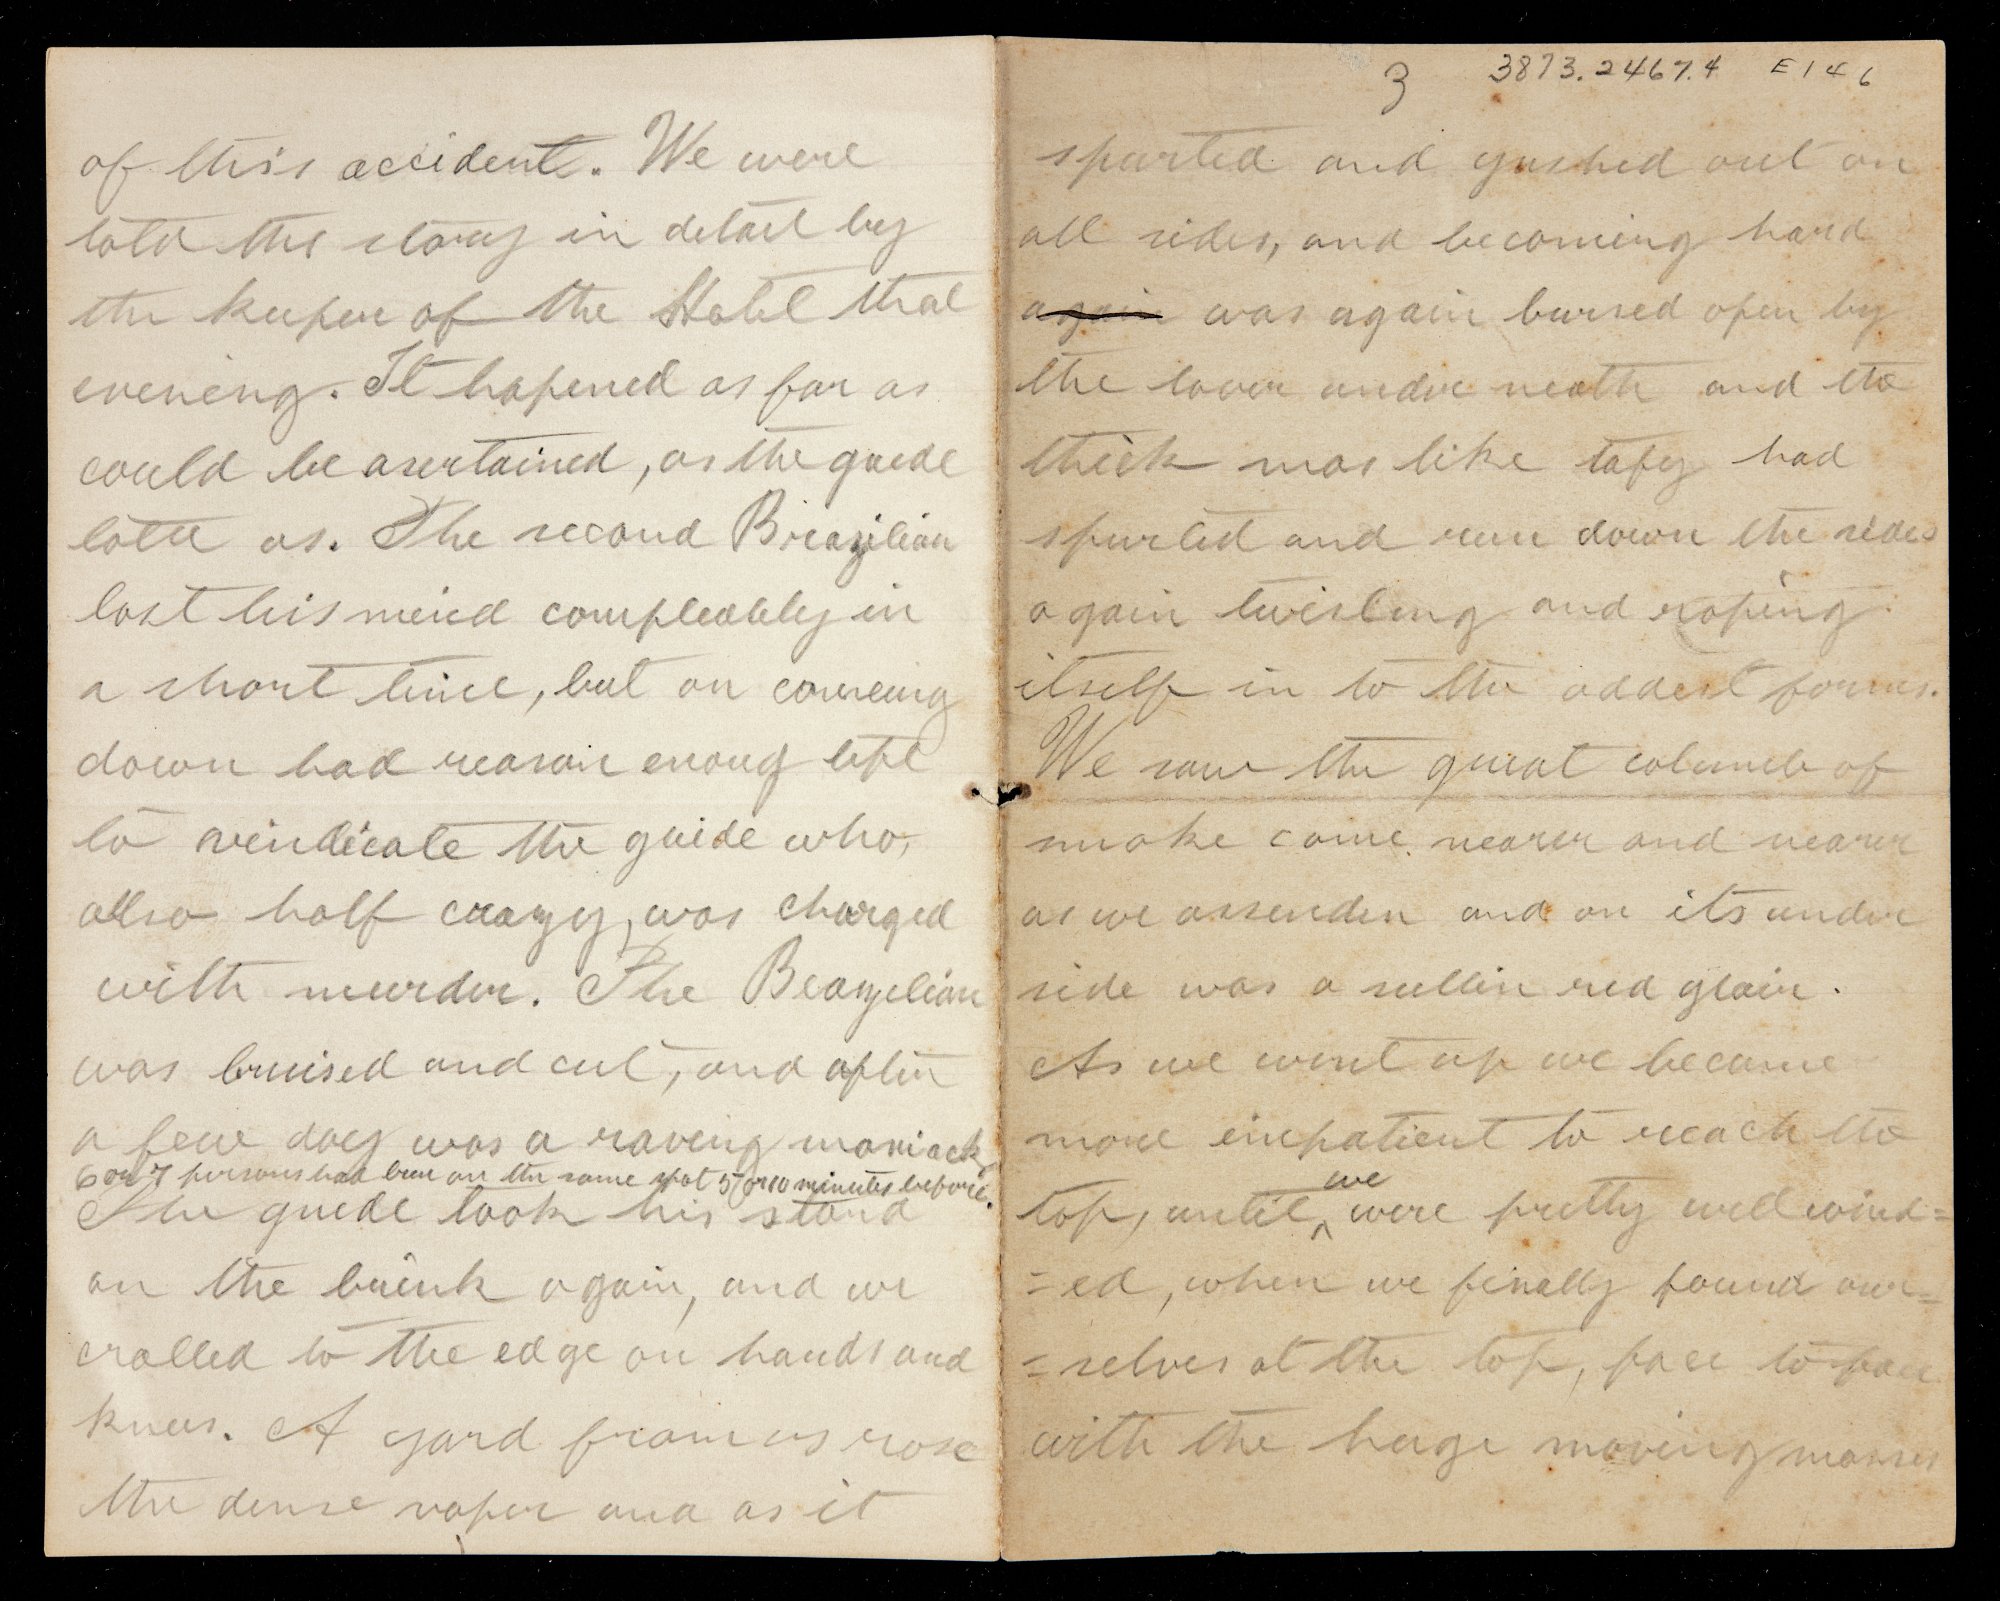 of this accident. We were
told the story in detail by
the keeper of the Hotel that
evening. It hapened as far as
could be asertained, as the guide
told us. The second Brazilian
lost his mind compleatly in
a short time, but on comeing
down had reason enoug left
to vindicate the guide who,
allso half crazy, was charged
with murder. The Brazelian
was bruised and cut, and after
a few day was a raveing maniack.
6 or 7 persons had been on the same spot 5 or 10 minutes before.
The guide took his stand
on the brink again, and we
cralled to the edge on hands and
knees. A yard from us rose
the dense vaper and as it
3 3873.2467.4 E146
spurted and gushed out on
all sides, and becoming hard
again was again bursed open by
the laver under neath and the
thick mas like tafy had
spurted and run down the sides
again twisting and roping
itself in to the oddest forms.
We saw the great columb of
smoke come nearer and nearer
as we assenden and on its under
side was a sullin red glair.
As we went up we became
more inpatient to reach the
top, until we were pretty well wind=
=ed, when we finally found our=
=selves at the top, face to face
with the huge moving masses